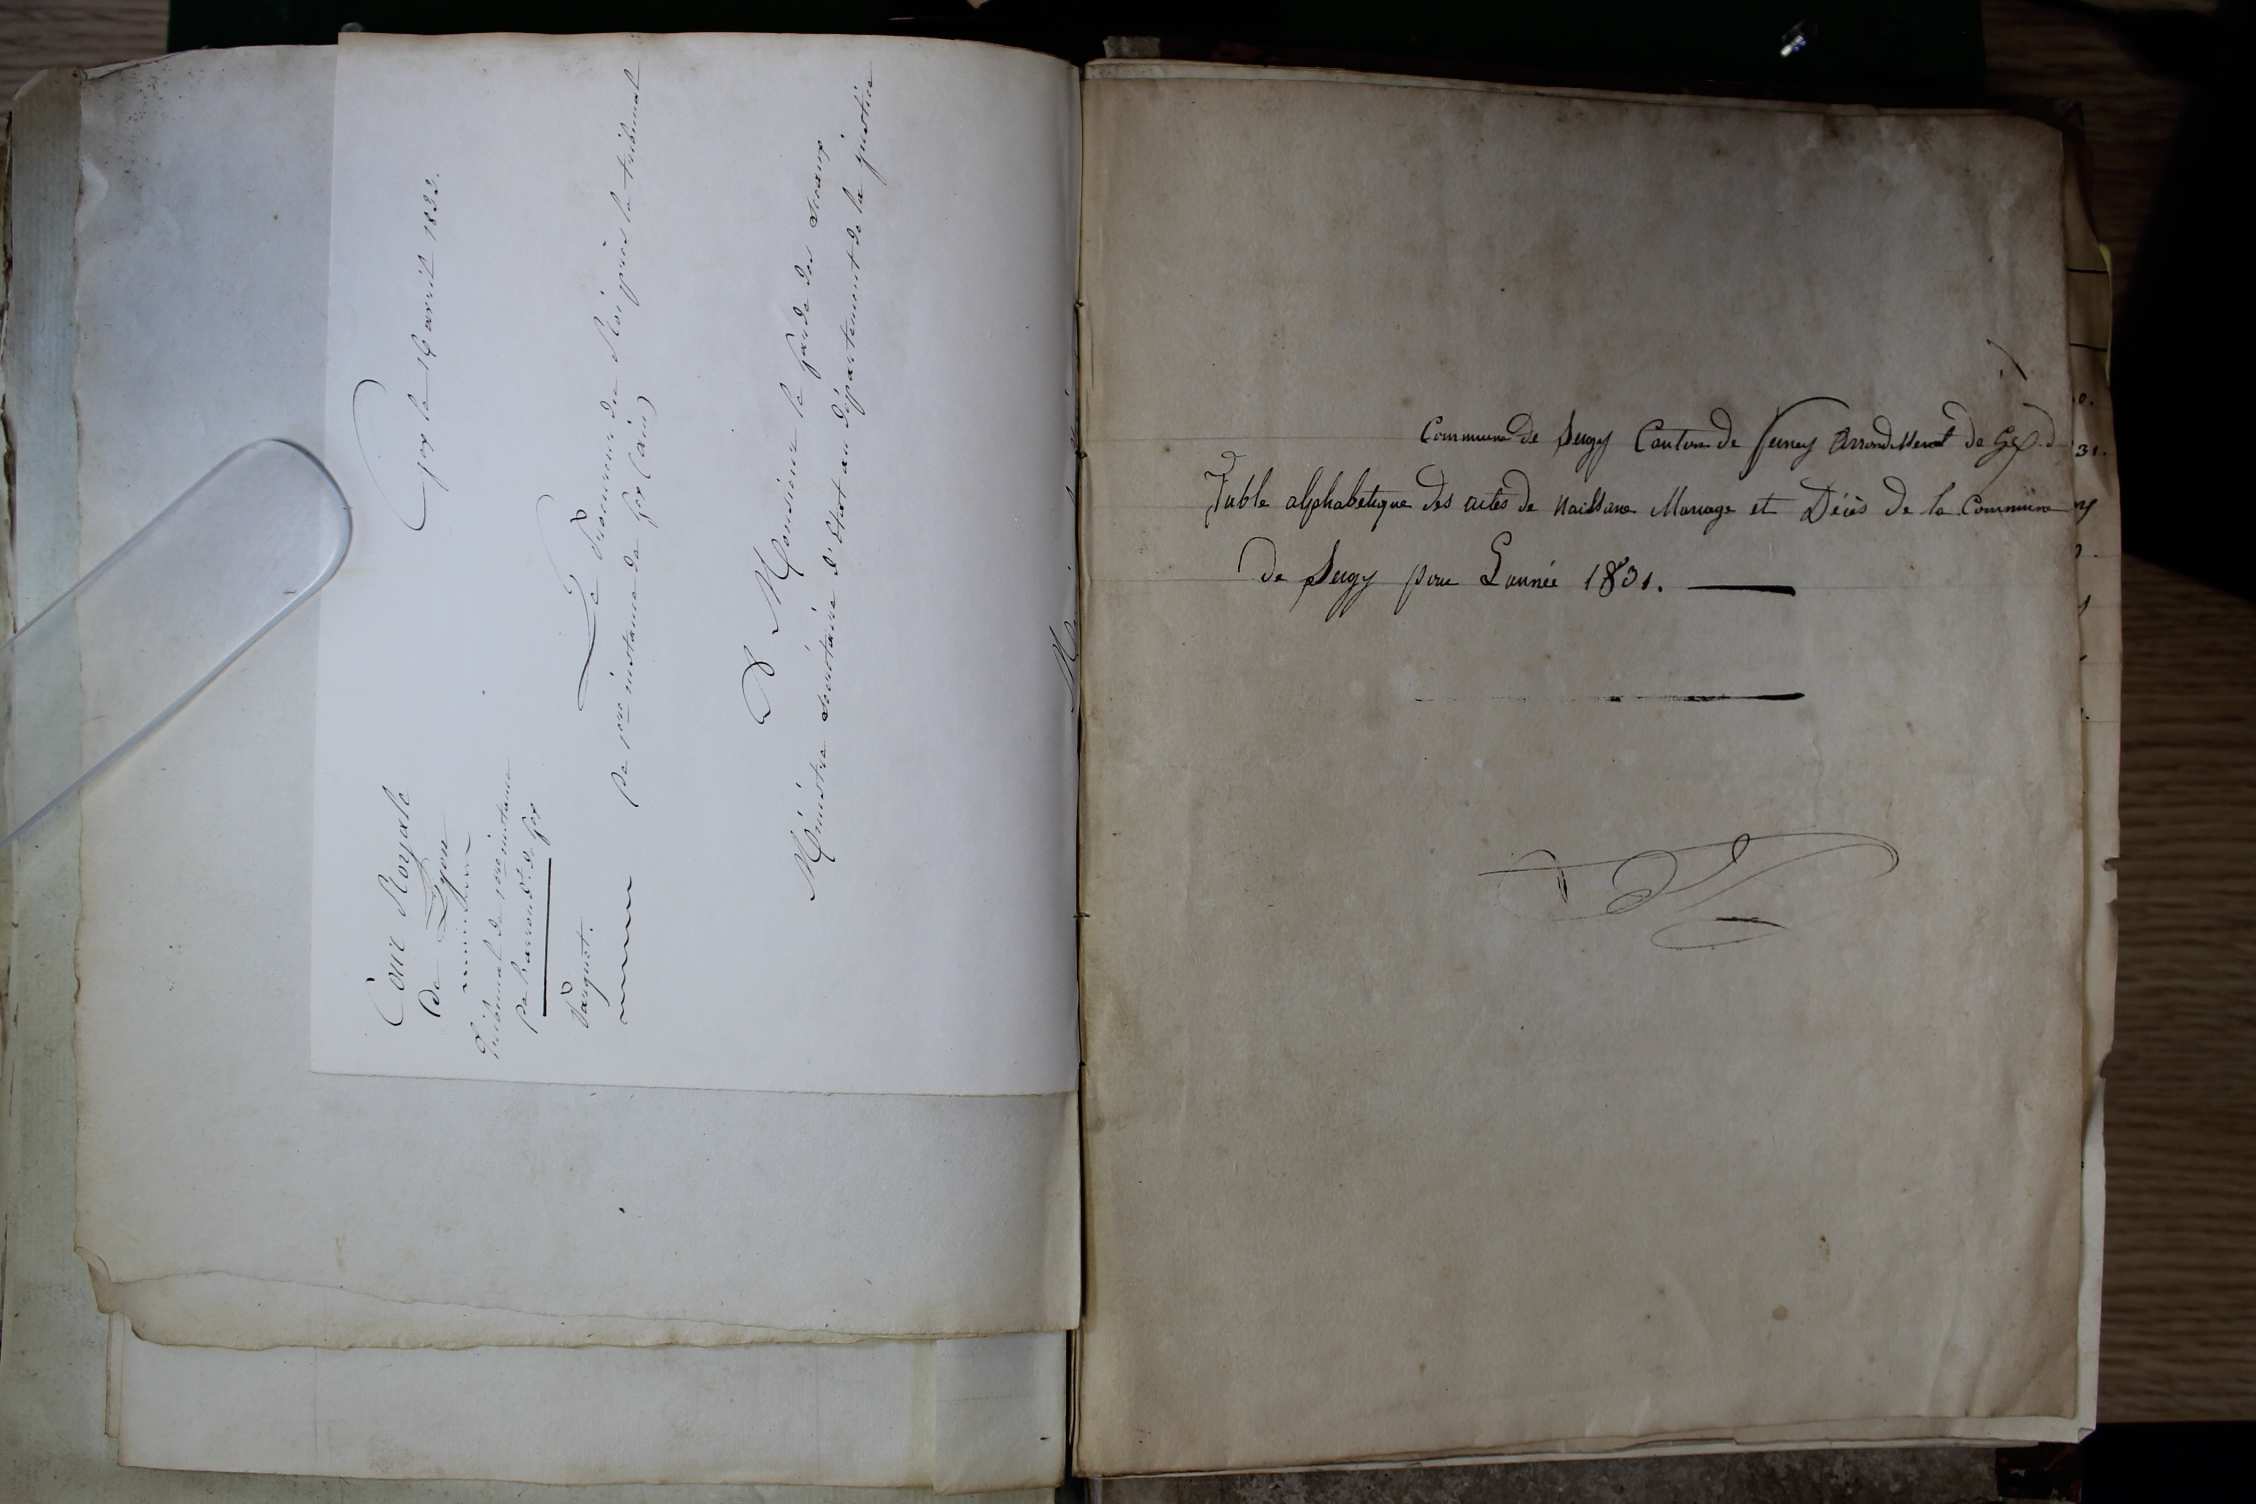 Cour Royale
de Lyon
Tribunal de 1ere instance
de l'arrondt. de Gex
Parquet.
Gex le 16 avril 1832.
Le Procureur du Roi près le tribunal
de 1ere instance de Gex (ain)
A Monsieur le garde des sceaux
Ministre secrétaire d'Etat au département de la justice
Commune de Sergy Canton de ferney Arrondissement de Gex
Table alphabetique des actes de Naissance Mariage et Décès de la Commune
de Sergy pour L'année 1831.